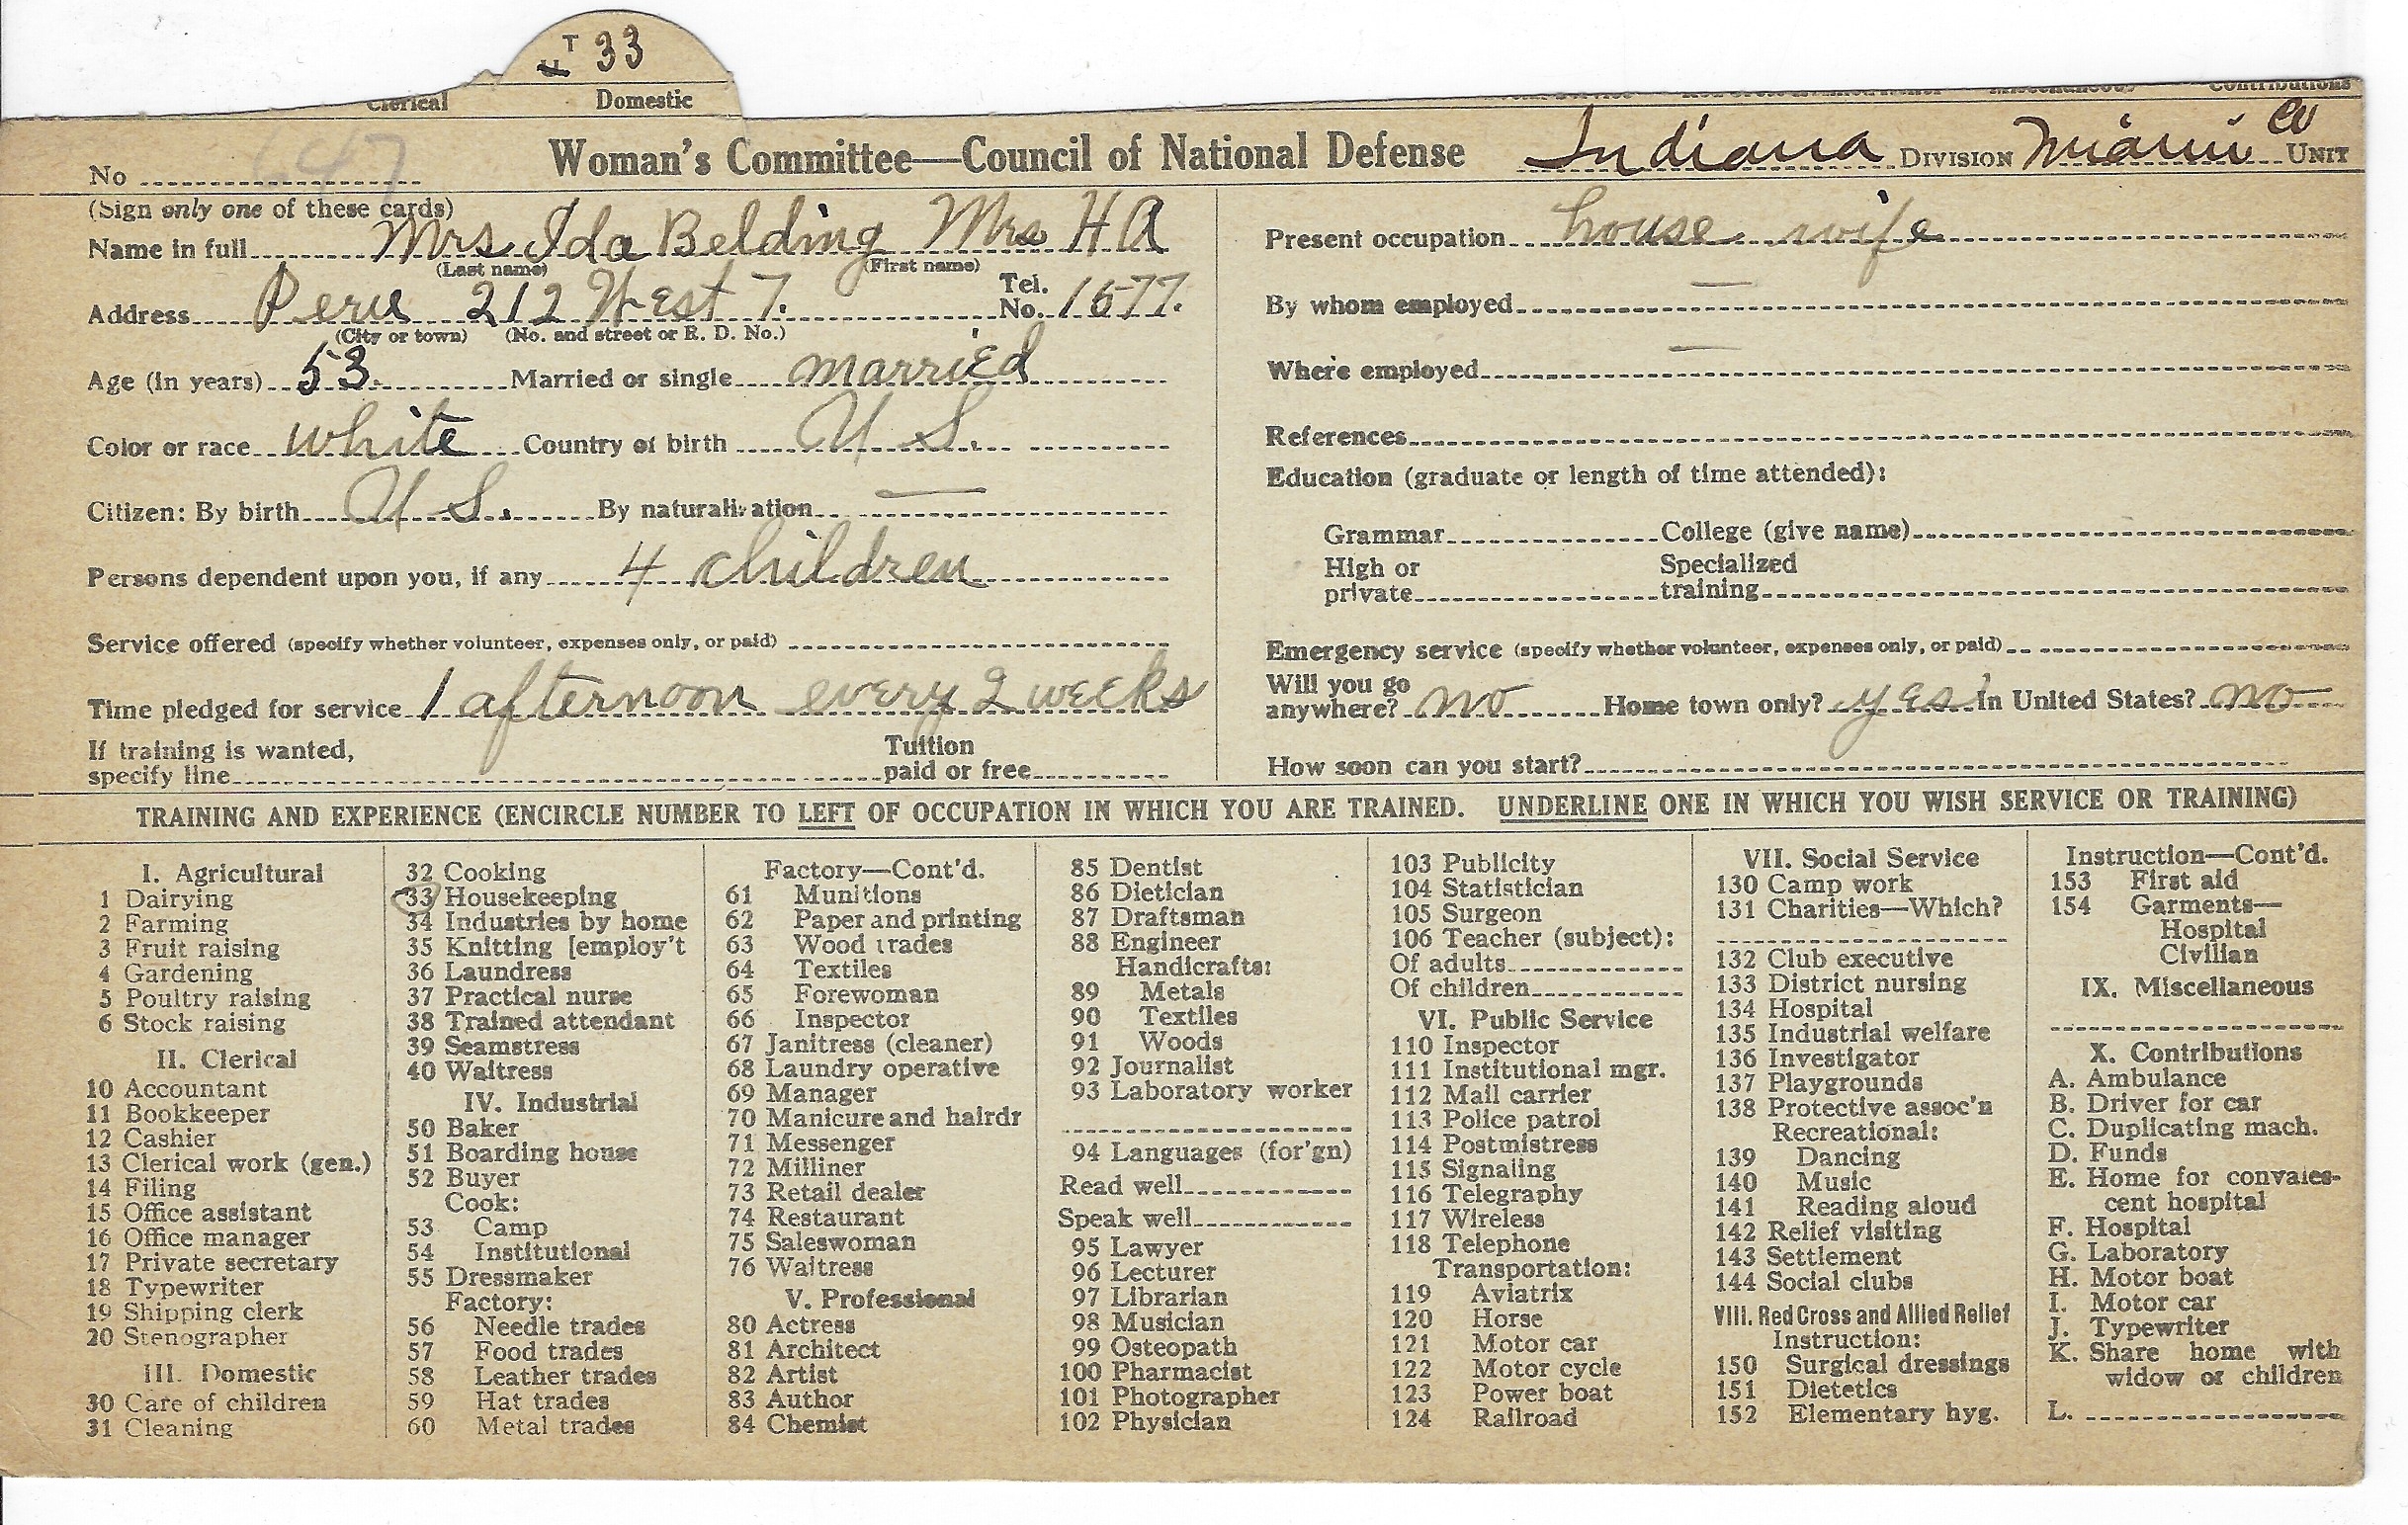 T 33
Clerical Domestic Miscellaneous Contributions
No 647 Woman's Committee—Council of National Defense Indiana DIVISION Miami Co UNIT
(Sign only one of these cards)
Name in full Mrs Ida Belding Mrs H A
(Last name) (First name)
Address Peru 212 West 7. Tel. No. 1577.
(City or town) (No. and street or R. D. No.)
Age (in years) 53. Married or single married
Color or race white Country of birth U S.
Citizen: By birth U S. By naturalization —
Persons dependent upon you, if any 4 children
Service offered (specify whether volunteer, expenses only, or paid)
Time pledged for service 1 afternoon every 2 weeks
If training is wanted,
specify line Tuition paid or free
Present occupation house wife
By whom employed —
Where employed —
References
Education (graduate or length of time attended):
Grammar College (give name)
High or private Specialized training
Emergency service (specify whether volunteer, expenses only, or paid)
Will you go anywhere? no Home town only? yes In United States? no
How soon can you start?
TRAINING AND EXPERIENCE (ENCIRCLE NUMBER TO LEFT OF OCCUPATION IN WHICH YOU ARE TRAINED. UNDERLINE ONE IN WHICH YOU WISH SERVICE OR TRAINING)
I. Agricultural
1 Dairying
2 Farming
3 Fruit raising
4 Gardening
5 Poultry raising
6 Stock raising
II. Clerical
10 Accountant
11 Bookkeeper
12 Cashier
13 Clerical work (gen.)
14 Filing
15 Office assistant
16 Office manager
17 Private secretary
18 Typewriter
19 Shipping clerk
20 Stenographer
III. Domestic
30 Care of children
31 Cleaning
32 Cooking
33 Housekeeping
34 Industries by home
35 Knitting [employ't
36 Laundress
37 Practical nurse
38 Trained attendant
39 Seamstress
40 Waitress
IV. Industrial
50 Baker
51 Boarding house
52 Buyer
Cook:
53 Camp
54 Institutional
55 Dressmaker
Factory:
56 Needle trades
57 Food trades
58 Leather trades
59 Hat trades
60 Metal trades
Factory—Cont'd.
61 Munitions
62 Paper and printing
63 Wood trades
64 Textiles
65 Forewoman
66 Inspector
67 Janitress (cleaner)
68 Laundry operative
69 Manager
70 Manicure and hairdr
71 Messenger
72 Milliner
73 Retail dealer
74 Restaurant
75 Saleswoman
76 Waitress
V. Professional
80 Actress
81 Architect
82 Artist
83 Author
84 Chemist
85 Dentist
86 Dietician
87 Draftsman
88 Engineer
Handicrafts:
89 Metals
90 Textiles
91 Woods
92 Journalist
93 Laboratory worker
94 Languages (for'gn)
Read well
Speak well
95 Lawyer
96 Lecturer
97 Librarian
98 Musician
99 Osteopath
100 Pharmacist
101 Photographer
102 Physician
103 Publicity
104 Statistician
105 Surgeon
106 Teacher (subject):
Of adults
Of children
VI. Public Service
110 Inspector
111 Institutional mgr.
112 Mail carrier
113 Police patrol
114 Postmistress
115 Signaling
116 Telegraphy
117 Wireless
118 Telephone
Transportation:
119 Aviatrix
120 Horse
121 Motor car
122 Motor cycle
123 Power boat
124 Railroad
VII. Social Service
130 Camp work
131 Charities—Which?
132 Club executive
133 District nursing
134 Hospital
135 Industrial welfare
136 Investigator
137 Playgrounds
138 Protective assoc'n
Recreational:
139 Dancing
140 Music
141 Reading aloud
142 Relief visiting
143 Settlement
144 Social clubs
VIII. Red Cross and Allied Relief
Instruction:
150 Surgical dressings
151 Dietetics
152 Elementary hyg.
Instruction—Cont'd.
153 First aid
154 Garments—
Hospital
Civilian
IX. Miscellaneous
X. Contributions
A. Ambulance
B. Driver for car
C. Duplicating mach.
D. Funds
E. Home for convales-
cent hospital
F. Hospital
G. Laboratory
H. Motor boat
I. Motor car
J. Typewriter
K. Share home with
widow or children
L.